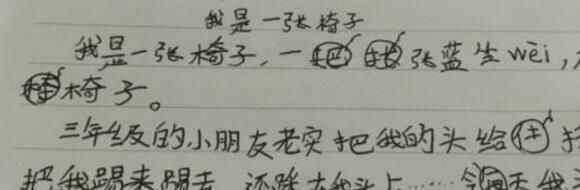 我是一张椅子
我是一张椅子，一把张蓝生wēi，
椅子。
三年级的小朋友老实把我的头给
把我踢来踢去，还踩在我头上……今天我